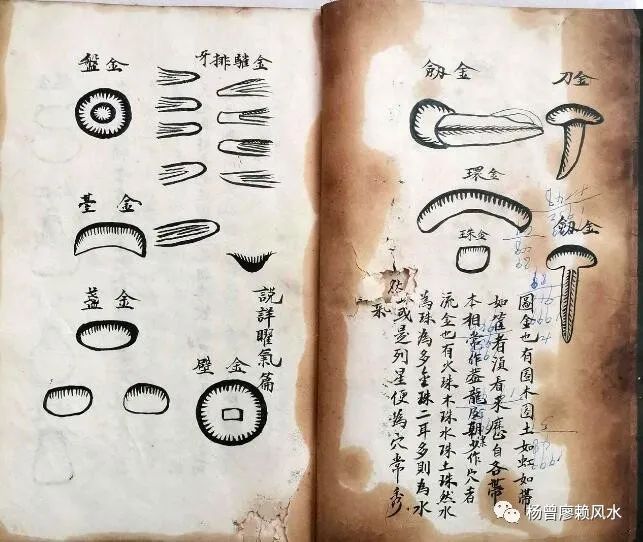 金刀
金釰
金釰
金環
金珠
圓金也有圓木圓土如虹如帶
如者須看来歷自各帶
本相常作龍朝作穴者
流金也有火珠木珠水珠土珠然水
為珠為多金珠二耳多則為水
或是列星便為穴常
金排牙
金盤
金臺
金盞
金璧
說詳曜氣篇
杨曾廖赖风水